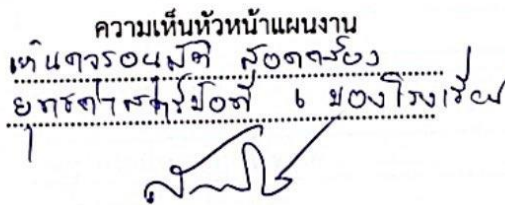 ความเห็นหัวหน้าแผนงาน
เห็นควรอนุมัติ สอดคล้อง
ยุทธศาสตร์ข้อที่ 6 ของโรงเรียน